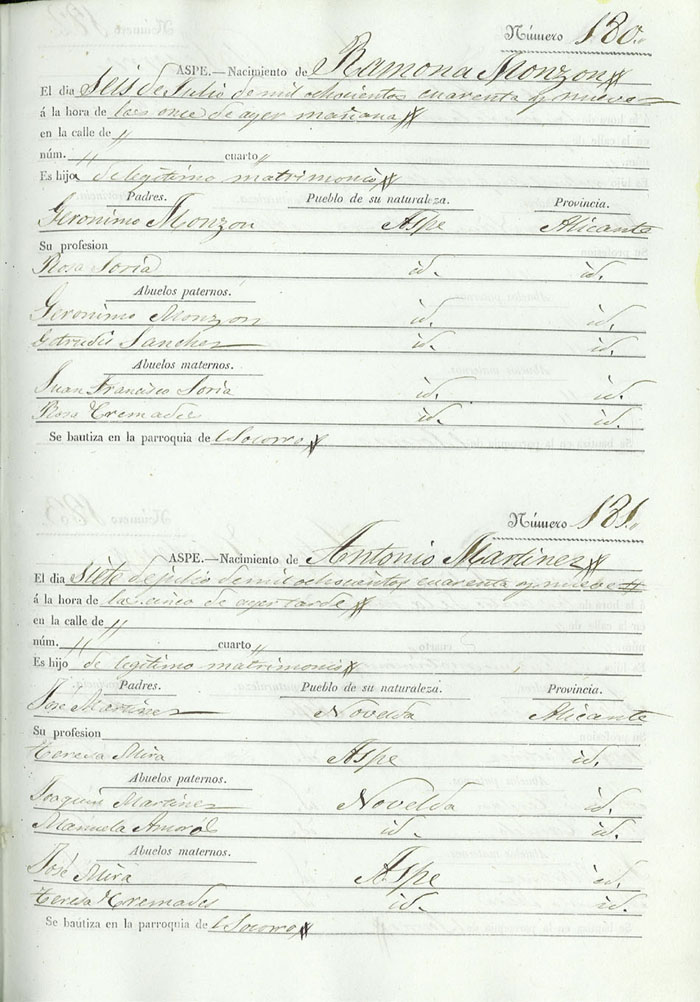 Número 180.
ASPE.—Nacimiento de Ramona Monzon
El dia Seis de Julio de mil ochocientos cuarenta y nueve
á la hora de las once de ayer mañana
en la calle de "
núm. " cuarto "
Es hija de legitimo matrimonio
Padres. Pueblo de su naturaleza. Provincia.
Geronimo Monzon Aspe Alicante
Su profesion
Rosa Soria id. id.
Abuelos paternos.
Geronimo Monzon id. id.
Getrudis Sanchez id. id.
Abuelos maternos.
Juan Francisco Soria id. id.
Rosa Cremades id. id.
Se bautiza en la parroquia de l Socorro
Número 181.
ASPE.—Nacimiento de Antonio Martinez
El dia Siete de julio de mil ochocientos cuarenta y nueve
á la hora de las cinco de ayer tarde
en la calle de "
núm. " cuarto "
Es hijo de legitimo matrimonio
Padres. Pueblo de su naturaleza. Provincia.
José Martinez Novelda Alicante
Su profesion
Teresa Mira Aspe id.
Abuelos paternos.
Joaquin Martinez Novelda id.
Manuela Amorós id. id.
Abuelos maternos.
José Mira Aspe id.
Teresa Cremades id. id.
Se bautiza en la parroquia de l Socorro